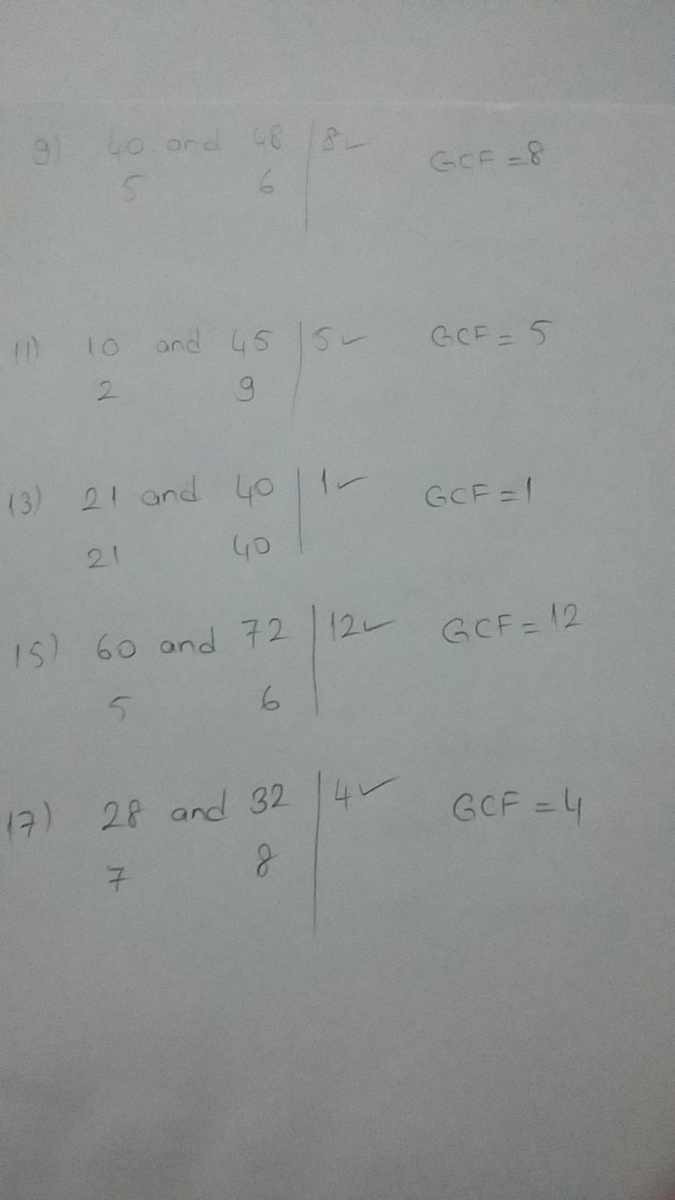 9) 40 and 48 | 8 ✓ GCF = 8
5 6
11) 10 and 45 | 5 ✓ GCF = 5
2 9
13) 21 and 40 | 1 ✓ GCF = 1
21 40
15) 60 and 72 | 12 ✓ GCF = 12
5 6
17) 28 and 32 | 4 ✓ GCF = 4
7 8